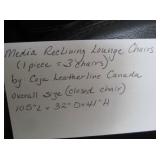 Media Reclining Lounge Chairs
(1 piece = 3 chairs)
by Coja Leatherline Canada
Overall Size (closed chair)
105"L x 32"D x 41"H